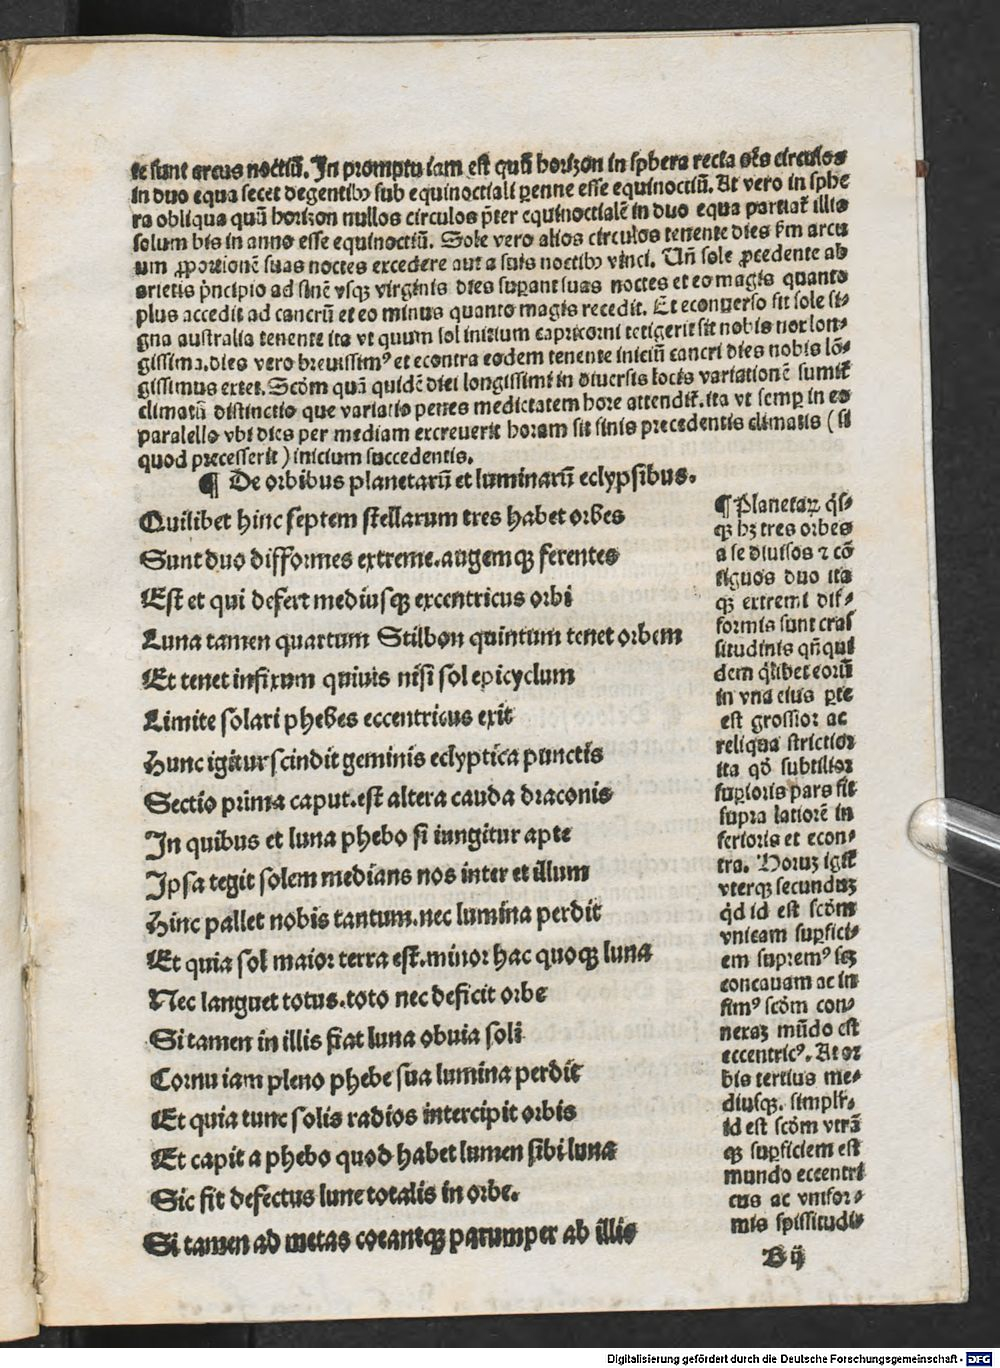 te sunt arcus noctiū. In promptu iam est quū horizon in sphera recta oēs circulos
in duo equa secet degentibꝰ sub equinoctiali ꝑenne esse equinoctiū. At vero in sphe
ra obliqua quū horizon nullos circulos p̄ter equinoctialē in duo equa partiat̄ illis
solum bis in anno esse equinoctiū. Sole vero alios circulos tenente dies ẜm arcu
um ꝓportionē suas noctes excedere aut a suis noctibꝰ vinci. Un̄ sole ꝓcedente ab
arietis p̍ncipio ad finē vsqꝫ virginis dies suꝑant suas noctes et eo magis quanto
plus accedit ad cancrū et eo minus quanto magis recedit. Et econuerso fit sole si-
gna australia tenente ita vt quum sol initium capricorni tetigerit sit nobis nox lon-
gissima. dies vero breuissimꝰ et econtra eodem tenente iniciū cancri dies nobis lō-
gissimus extet. Scḋm quā quidē diei longissimi in diuersis locis variationē sumit̄
climatū distinctio que variatio penes medietatem hore attendit̄. ita vt semꝑ in eo
paralello vbi dies per mediam excreuerit horam sit finis precedentis climatis (si
quod precesserit) inicium succedentis.
¶ De orbibus planetarū et luminarū eclypsibus.
Quilibet hinc septem stellarum tres habet orbes
Sunt duo difformes extreme. augem qꝫ ferentes
Est et qui defert mediusqꝫ excentricus orbi
Luna tamen quartum Stilbon quintum tenet orbem
Et tenet infixum quiuis nisi sol epicyclum
Limite solari phebes eccentricus exit
Hunc igitur scindit geminis eclyptica punctis
Sectio prima caput. est altera cauda draconis
In quibus et luna phebo si iungitur apte
Ipsa tegit solem medians nos inter et illum
Hinc pallet nobis tantum. nec lumina perdit
Et quia sol maior terra est. minor hac quoqꝫ luna
Nec languet totus. toto nec deficit orbe
Si tamen in illis fiat luna obuia soli
Cornu iam pleno phebe sua lumina perdit
Et quia tunc solis radios intercipit orbis
Et capit a phebo quod habet lumen sibi luna
Sic fit defectus lune totalis in orbe.
Si tamen ad metas coeantqꝫ parumper ab illis
¶ Planetaꝝ q̍li-
qꝫ hꝫ tres orbes
a se diuisos ⁊ cō
tiguos duo ita
qꝫ extremi dif-
formis sunt cras
situdinis qn̄qui
dem q̍libet eorū
in vna eius ꝑte
est grossior ac
reliqua strictior
ita qḋ subtilior
suꝑioris pars sit
supra latiorē in
ferioris et econ-
tra. Horuꝫ igit̄
vterqꝫ secunduꝫ
q̍d id est scḋm
vnicam suꝑfici-
em supremꝰ sꝫ
concauam ac in
fimꝰ scḋm con-
uexaꝫ mūdo est
eccentricꝰ. At or
bis tertius me-
diusqꝫ. simplr̄-
id est scḋm vtrā
qꝫ suꝑficiem est
mundo eccentri
cus ac vnifor-
mis spissitudi-
B ij
Digitalisierung gefördert durch die Deutsche Forschungsgemeinschaft - DFG